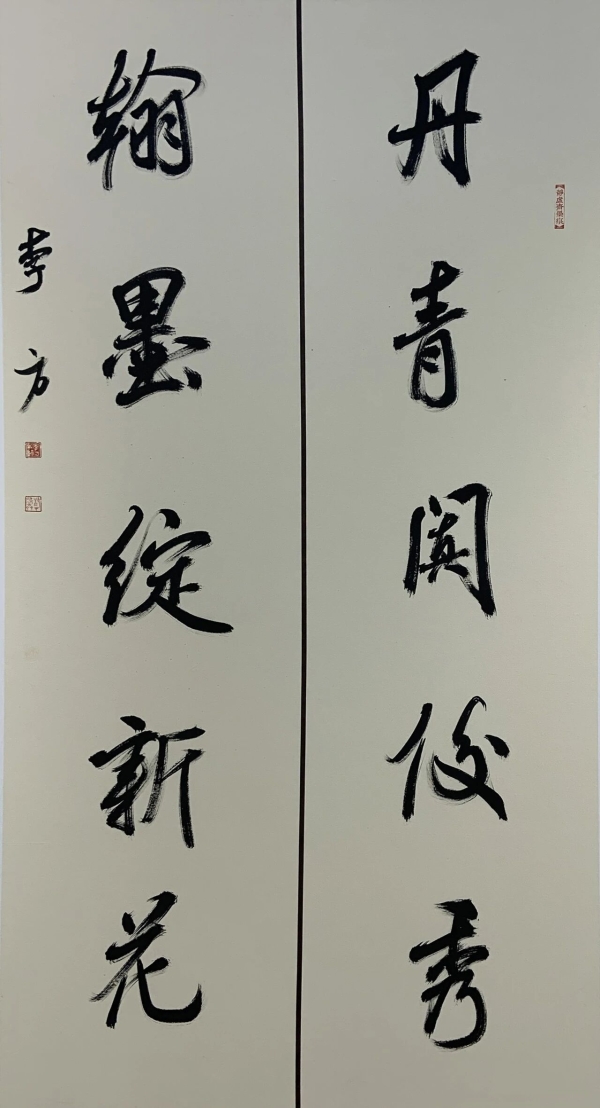 丹青俊秀
翰墨绽新花
李方